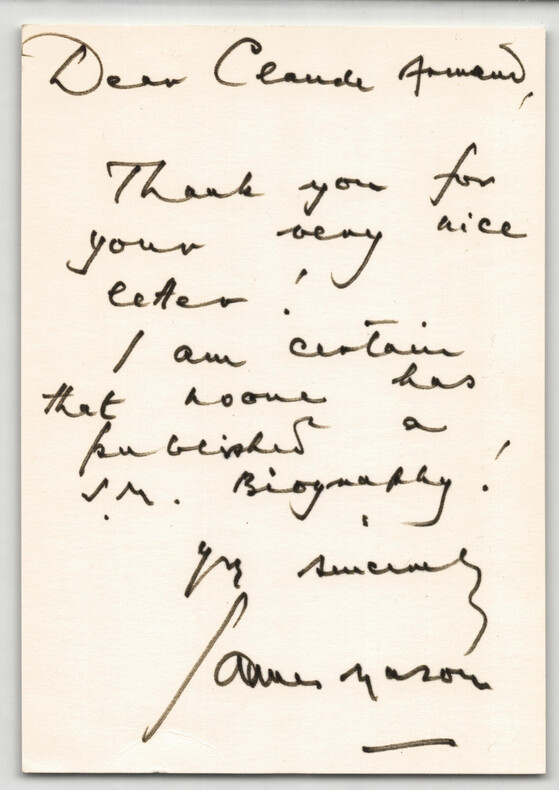 Dear Claude Armand,
Thank you for
your very nice
letter!
I am certain
that noone has
published a
J.M. Biography!
Yrs sincerely
James Mason